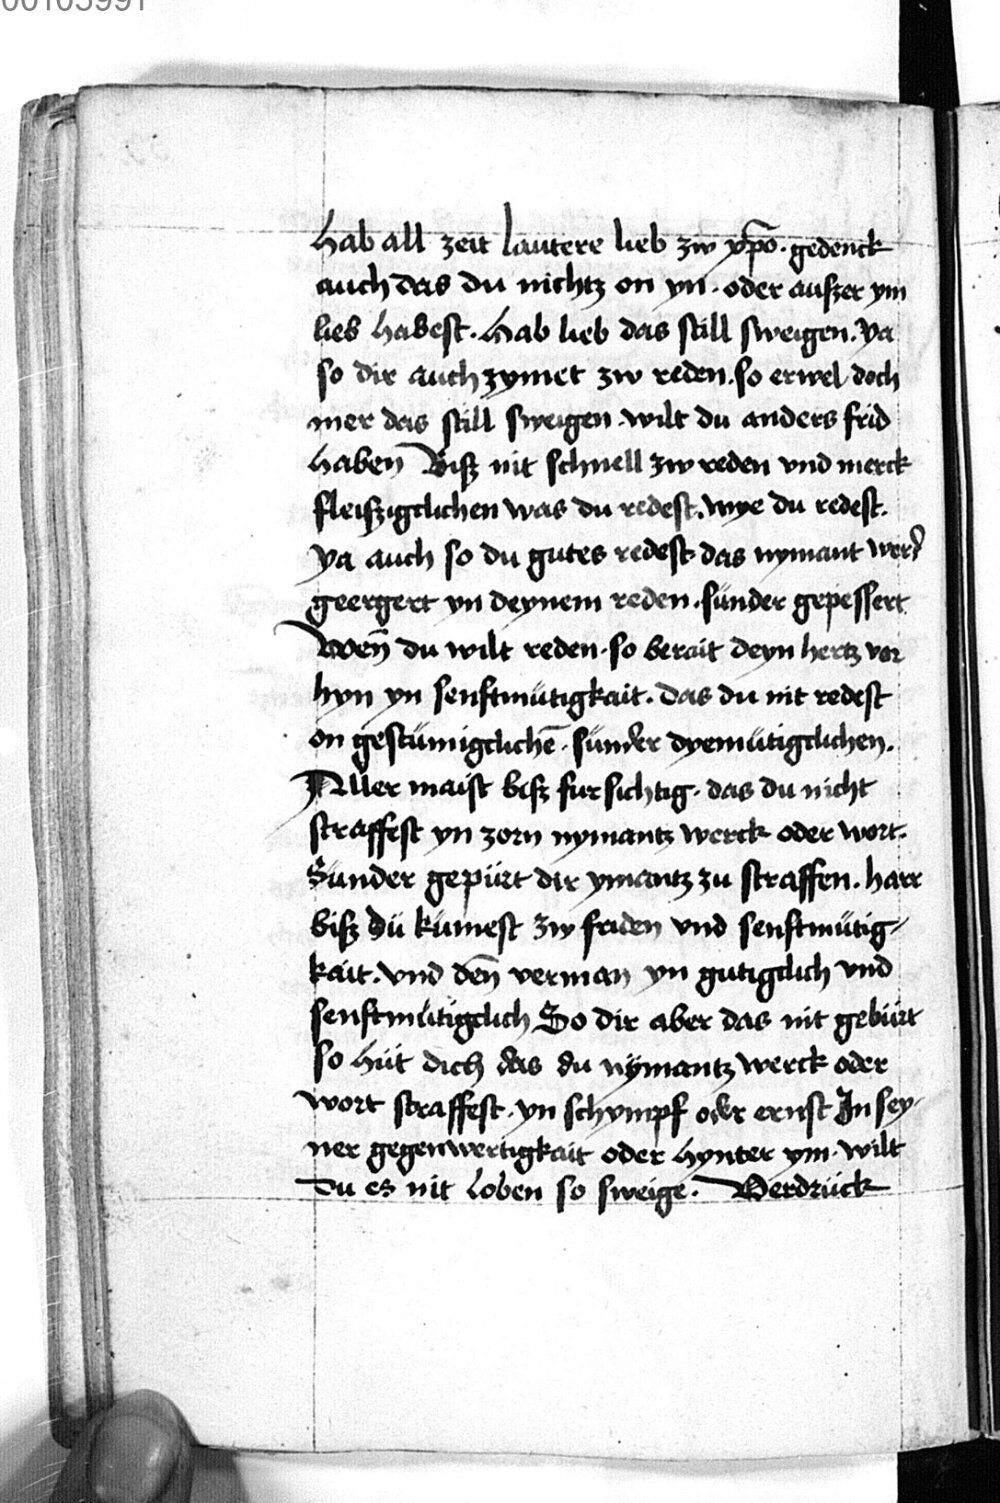 00103991
hab all zeit lautere lieb zw xp̄o · gedenck
auch das du nichtz on yn · oder aufzer ym
lieb habest · hab lieb das still sweigen · ya
so dir auch zymet zw reden · so erwel doch
mer das still sweigen · wilt du anders frid
haben Bisz nit schnell zw reden vnd merck
fleiszigclichen was du redest · wye du redest ·
ya auch so du gutes redest · das nymant werd
geergert yn deynem reden · sünder gepessert
Wen̄ du wilt reden · so berait deyn hertz vor
hyn yn senftmütigkait · das du nit redest
on gestümigclichē · sünder dyemütigclichen ·
Aller maist bisz fursichtig · das du nicht
straffest yn zorn nymantz werck oder wort ·
Sünder gepürt dir ymantz zu straffen · harr
bisz dü kümest zw friden vnd senftmütig-
kait · vnd den̄ verman yn gutigclich vnd
senftmütigclich So dir aber das nit gebürt
so hüt dich das du nÿmantz werck oder
wort straffest · yn schympf oder ernst In sey-
ner gegenwertigkait oder hynter ym · wilt
du es nit loben so sweige · Verdrück